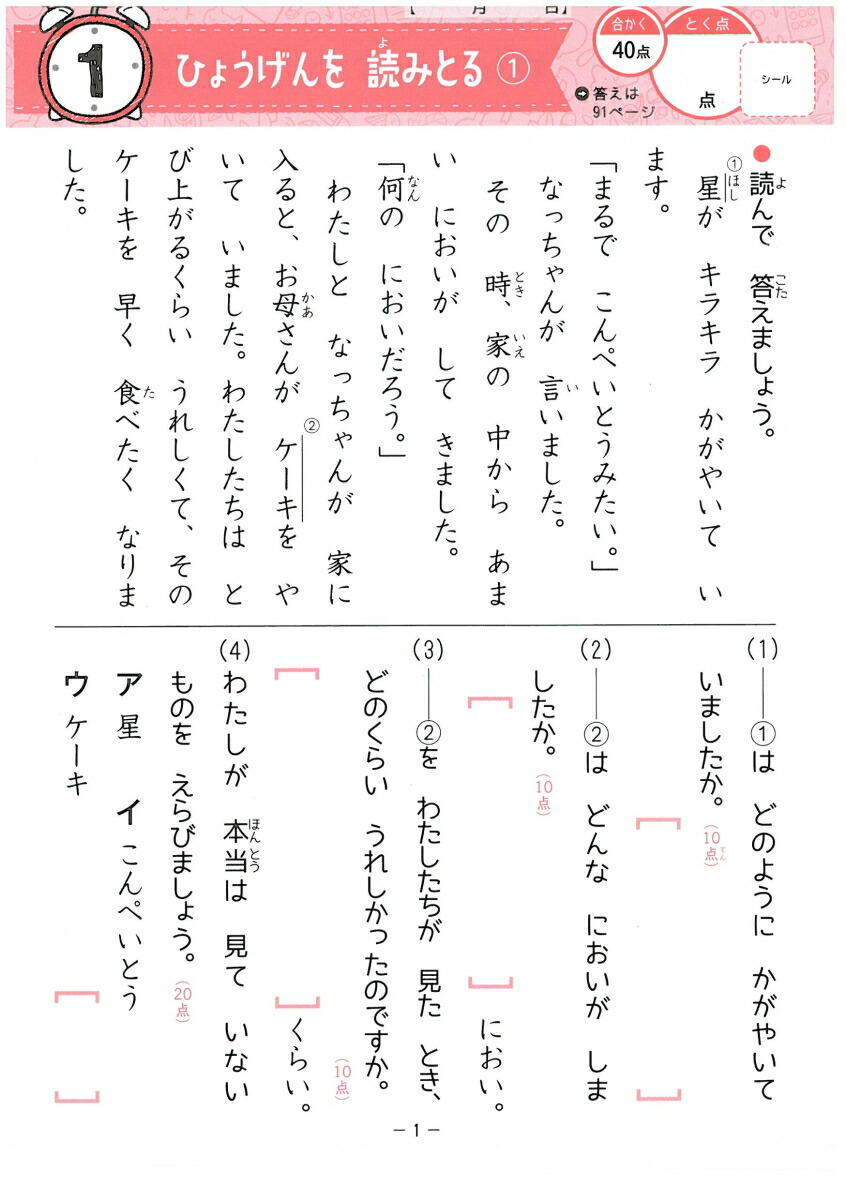 【　月　日】
1
ひょうげんを 読みとる ①
よ
合かく
40点
とく点
点
シール
答えは
91ページ
●読んで 答えましょう。
よ
こた
①
星が キラキラ かがやいて い
ほし
ます。
「まるで こんぺいとうみたい。」
なっちゃんが 言いました。
い
その 時、家の 中から あま
とき
いえ
い においが して きました。
「何の においだろう。」
なん
わたしと なっちゃんが 家に
入ると、お母さんが ケーキを や
かあ
②
いて いました。わたしたちは と
び上がるくらい うれしくて、その
ケーキを 早く 食べたく なりま
た
した。
(1) ――①は どのように かがやいて
いましたか。(10点)
てん
［　］
(2) ――②は どんな においが しま
したか。(10点)
［　］におい。
(3) ――②を わたしたちが 見た とき、
どのくらい うれしかったのですか。
(10点)
［　］くらい。
(4) わたしが 本当は 見て いない
ほんとう
ものを えらびましょう。(20点)
ア 星　イ こんぺいとう
ウ ケーキ
［　］
－1－